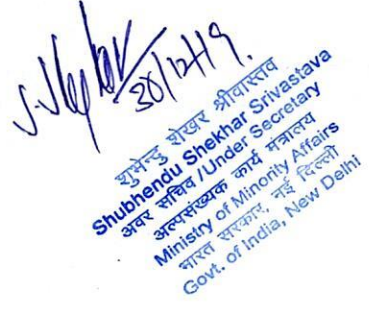 30/12/19.
शुभेन्दु शेखर श्रीवास्तव
Shubhendu Shekhar Srivastava
अवर सचिव/Under Secretary
अल्पसंख्यक कार्य मंत्रालय
Ministry of Minority Affairs
भारत सरकार, नई दिल्ली
Govt. of India, New Delhi